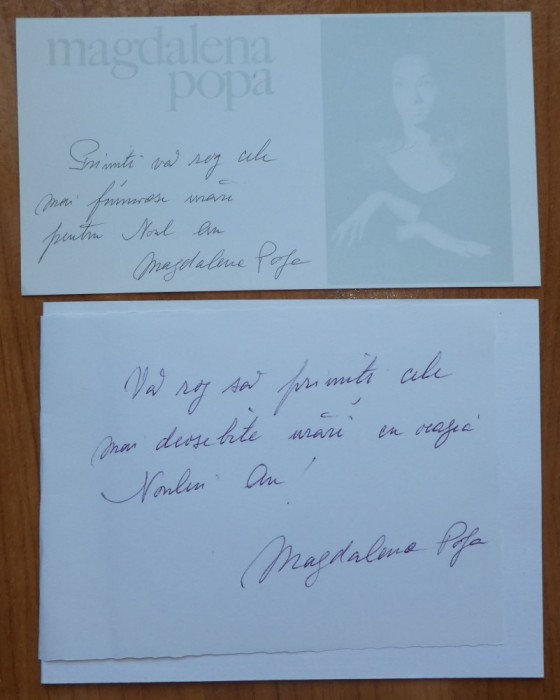 magdalena
popa
Primiti vă rog cele
mai frumoase urări
pentru Noul An
Magdalena Popa
Vă rog să primiti cele
mai deosebite urări cu ocazia
Noului An!
Magdalena Popa